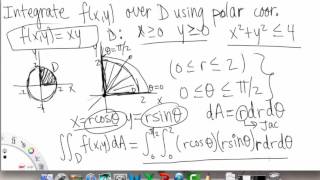 Integrate f(x,y) over D using polar coor.
f(x,y)=xy D: x≥0 y≥0 x²+y²≤4
2 D θ=π/2
-2 2 x θ=0
-2
0≤r≤2
0≤θ≤π/2
x=rcosθ y=rsinθ dA=rdrdθ
→Jac
∬_D f(x,y)dA = ∫₀^{π/2}∫₀² (rcosθ)(rsinθ)rdrdθ